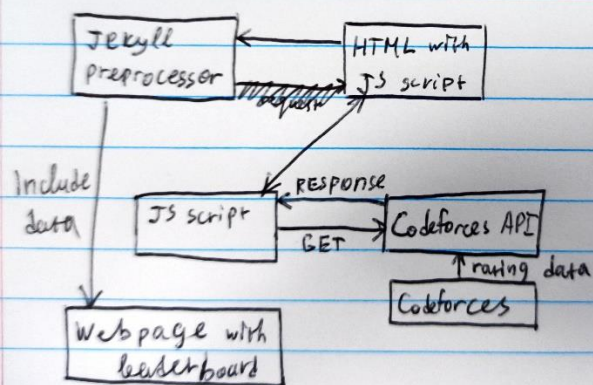 Jekyll
preprocessor
HTML with
JS script
Include
data
JS script
RESPONSE
GET
Codeforces API
rating data
Codeforces
Webpage with
leaderboard